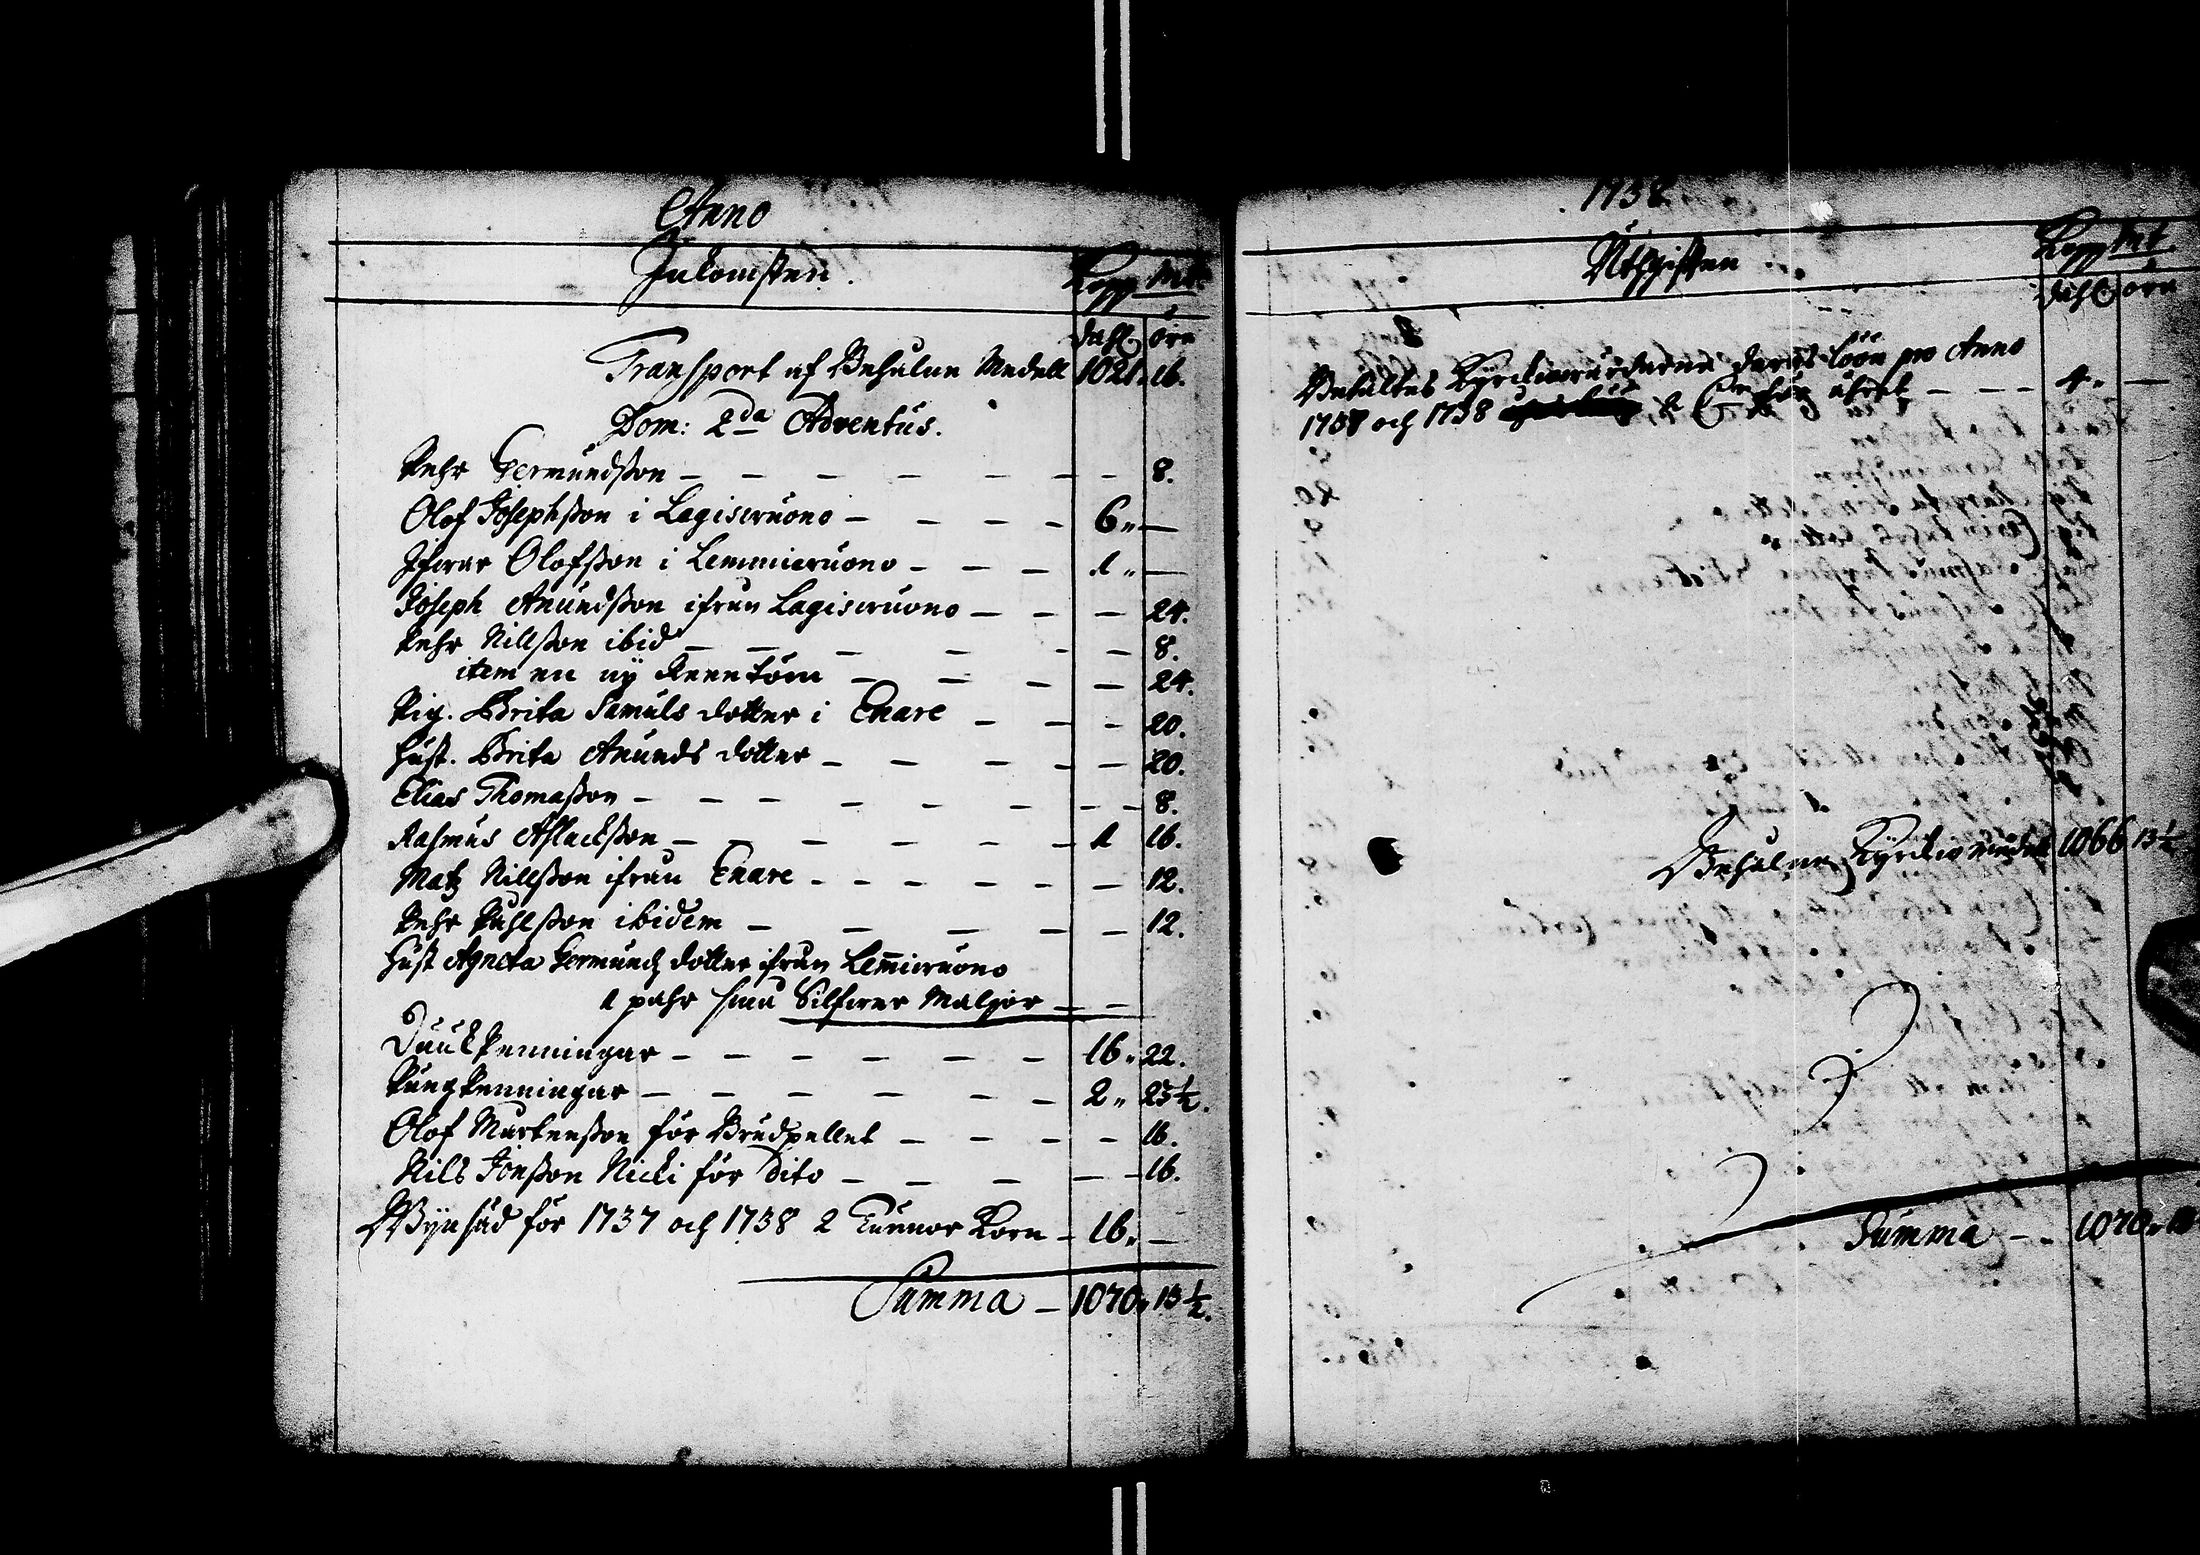 Anno
Inkomsten.
Kopp Mt.
dahl öre
Transport af Behålne Medell 1021. 16.
Dom: 2da Adventus.
Pehr Germundsson — 8.
Olof Josephsson i Lagiswuono — 6. —
Ifwar Olofsson i Lemmiwuono — 1. —
Joseph Amundsson ifrån Lagiswuono — 24.
Pehr Nillsson ibid — 8.
item en ny Reentöm — 24.
Pig. Brita Samuls dotter i Enare — 20.
Hust. Brita Amunds dotter — 20.
Elias Thomasson — 8.
Rasmus Aslacksson — 1 16.
Matz Nillsson ifrån Enare — 12.
Pehr Påhlsson ibidem — 12.
Hust Agneta Germundz dotter ifrån Lemiwuono
1 pahr små Silfwer Maljor — —
Diuukpenningar — 16. 22.
Pungpenningar — 2. 23½.
Olof Mårtensson för Brudpellet — 16.
Nils Jonsson Nicki för dito — 16.
Wijnsäd för 1737 och 1738 2 Tunnor Korn — 16. —
Summa — 1070. 13½.
1738
Uthgiften
Kopp Mt.
dahl öre
Betaltes Kyrckiowärdarne deras löön pro Anno
1737 och 1738 2 för åhret — 4. —
Behålne Kyrckio medel 1066 13½
Summa — 1070.